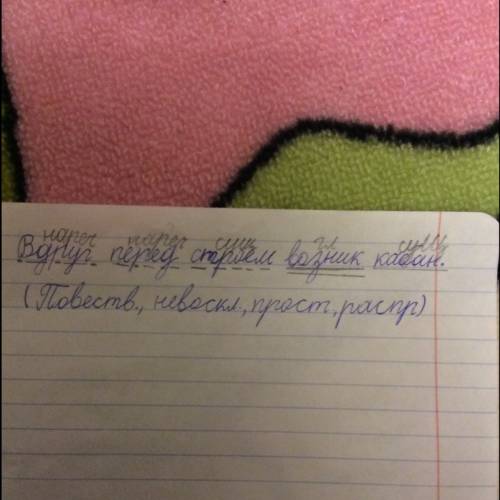 нареч нареч сущ гл сущ
Вдруг перед строем возник кабан.
(Повеств., невоскл., прост, распр)